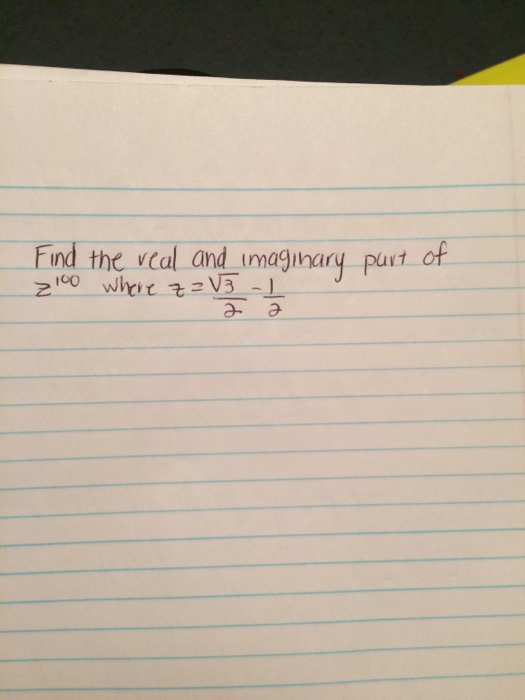 Find the real and imaginary part of
z¹⁰⁰ where z = √3/2 - 1/2